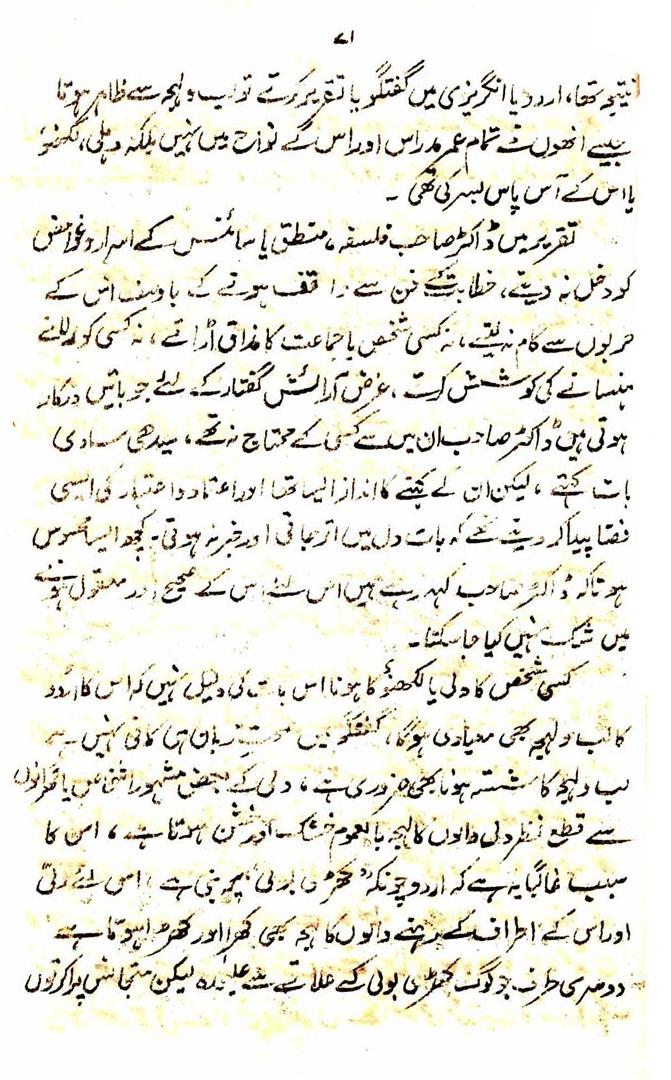 ۷۱
نتیجہ تھا، اردو یا انگریزی میں گفتگو یا تقریر کرتے تو لب و لہجہ سے ظاہر ہوتا
جیسے انھوں نے تمام عمر مدراس اور اس کے نواح میں نہیں بلکہ دہلی، لکھنؤ
یا اس کے آس پاس بسر کی تھی ۔
تقریر میں ڈاکٹر صاحب فلسفہ، منطق یا سائنس کے اسرار و غوامض
کو دخل نہ دیتے، خطابت کے فن سے واقف ہونے کے باوصف اس کے
حربوں سے کام نہ لیتے، نہ کسی شخص یا جماعت کا مذاق اڑاتے، نہ کسی کو رلانے
ہنسانے کی کوشش کرتے، غرض آرائش گفتار کے لئے جو باتیں درکار
ہوتی ہیں ڈاکٹر صاحب ان میں سے کسی کے محتاج نہ تھے، سیدھی سادی
بات کہتے، لیکن ان کے کہنے کا انداز ایسا تھا اور اعتماد و اعتبار کی ایسی
فضا پیدا کر دیتے تھے کہ بات دل میں اتر جاتی اور خبر نہ ہوتی۔ کچھ ایسا محسوس
ہوتا کہ ڈاکٹر صاحب کہہ رہے ہیں اس لئے اس کے صحیح اور معقول ہونے
میں شک نہیں کیا جا سکتا۔
کسی شخص کا دلی یا لکھنؤ کا ہونا اس بات کی دلیل نہیں کہ اس کا اردو
کا لب و لہجہ بھی معیاری ہوگا، گفتگو میں صحت زبان ہی کافی نہیں ہے
لب و لہجہ کا شستہ ہونا بھی ضروری ہے، دلی کے بعض مشہور اشخاص یا گھرانوں
سے قطع نظر دلی والوں کا لہجہ بالعموم خشک اور خشن ہوتا ہے، اس کا
سبب غالباً یہ ہے کہ اردو چونکہ "کھڑی بولی" پر مبنی ہے، اس لئے دلی
اور اس کے اطراف کے رہنے والوں کا لہجہ بھی کھرا اور کھڑا ہوتا ہے
دوسری طرف جو لوگ کھڑی بولی کے علاقے سے علیحدہ لیکن متجانس پراکرتوں